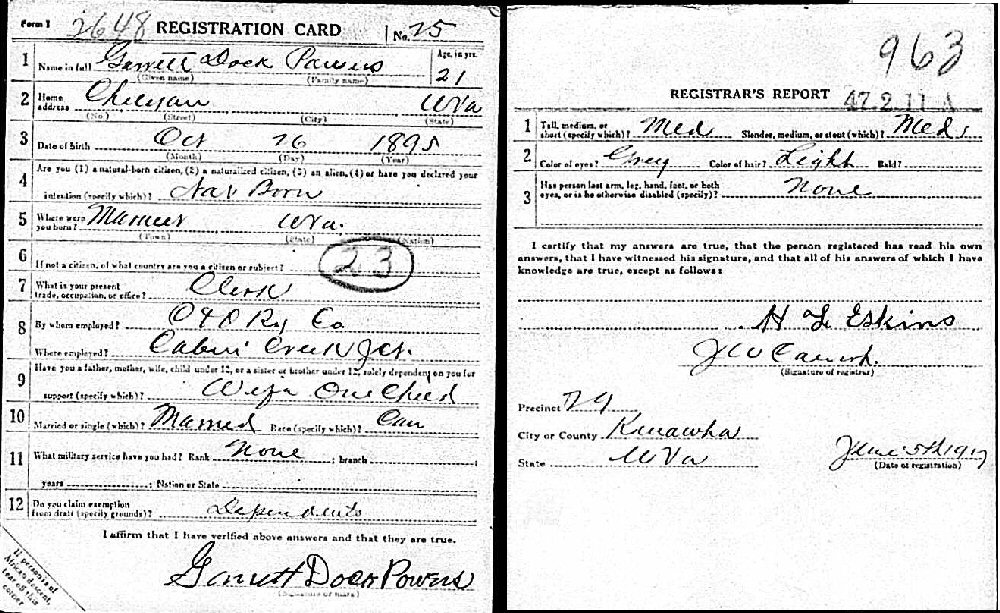 Form 1 2648 REGISTRATION CARD No. 25
1 Name in full Garrett Dock Powers Age, in yrs. 21
(Given name) (Family name)
2 Home address Chelyan WVa
(No.) (Street) (City) (State)
3 Date of birth Oct 26 1895
(Month) (Day) (Year)
4 Are you (1) a natural-born citizen, (2) a naturalized citizen, (3) an alien, (4) or have you declared your
intention (specify which)? Nat Born
5 Where were you born? WVa.
(Town) (State) (Nation)
6 If not a citizen, of what country are you a citizen or subject?
23
7 What is your present trade, occupation, or office? Clerk
8 By whom employed? C & O Ry Co
Where employed? Cabin Creek Jct.
9 Have you a father, mother, wife, child under 12, or a sister or brother under 12, solely dependent on you for
support (specify which)? Wife One Child
10 Married or single (which)? Married Race (specify which)? Cau
11 What military service have you had? Rank None ; branch
years ; Nation or State
12 Do you claim exemption from draft (specify grounds)? Dependents
I affirm that I have verified above answers and that they are true.
Garrett Dock Powers
(Signature or mark)
If person is of African descent, tear off this corner
963
REGISTRAR'S REPORT 47-2-11 A
1 Tall, medium, or short (specify which)? Med Slender, medium, or stout (which)? Med.
2 Color of eyes? Grey Color of hair? Light Bald?
3 Has person lost arm, leg, hand, foot, or both eyes, or is he otherwise disabled (specify)? None
I certify that my answers are true, that the person registered has read his own
answers, that I have witnessed his signature, and that all of his answers of which I have
knowledge are true, except as follows:
H L Eskins
(Signature of registrar)
Precinct
City or County Kanawha
State WVa June 5th 1917
(Date of registration)